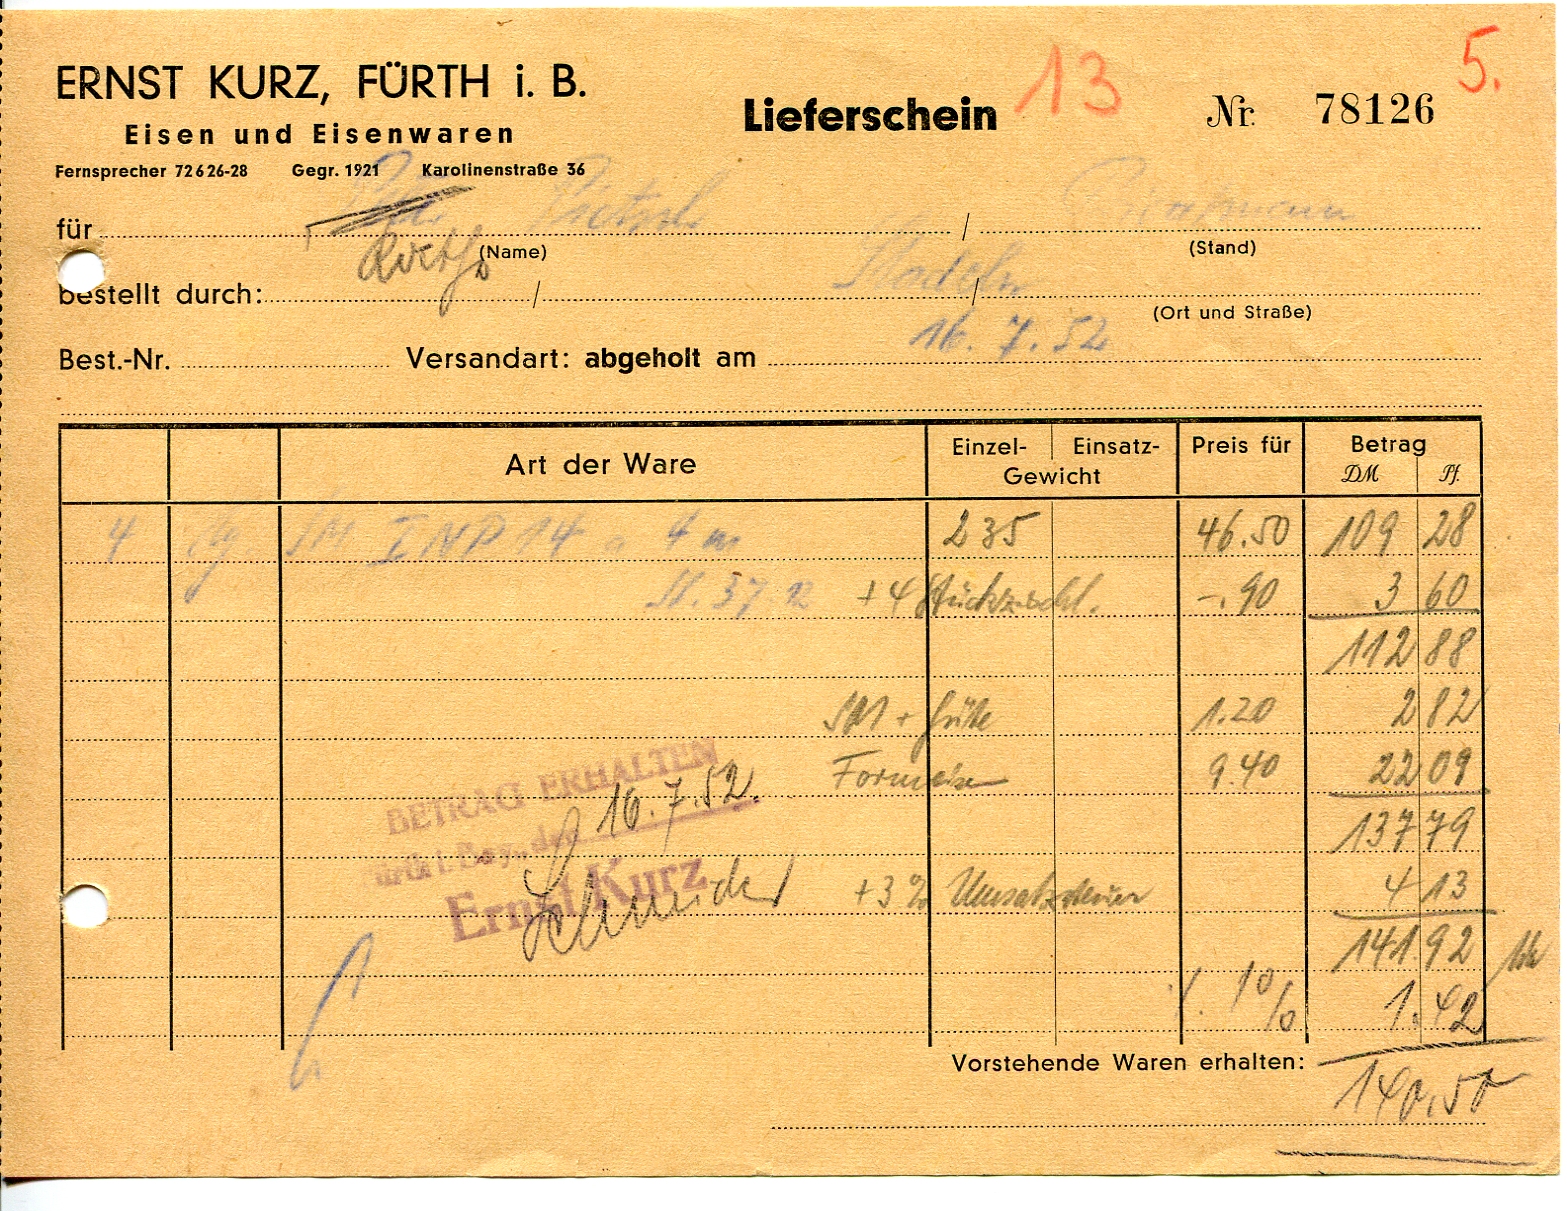 13
5.
ERNST KURZ, FÜRTH i. B.
Lieferschein
Nr. 78126
Eisen und Eisenwaren
Fernsprecher 72626-28 Gegr. 1921 Karolinenstraße 36
für
(Name) (Stand)
bestellt durch: Stadeln
(Ort und Straße)
Best.-Nr. Versandart: abgeholt am 16. 7. 52
Art der Ware Einzel- Einsatz- Gewicht Preis für Betrag DM Pf.
4 SM INP 14 a 4 m 235 46.50 109 28
St. 37.12 +4 Stückzuschl. -.90 3 60
112 88
SM + Güte 1.20 2 82
Formeisen 9.40 22 09
137 79
+3% Umsatzsteuer 4 13
141.92
1% 1.42
BETRAG ERHALTEN
ürth i. Bay., den 16.7.52.
Ernst Kurz
Schneider
Vorstehende Waren erhalten:
140,50